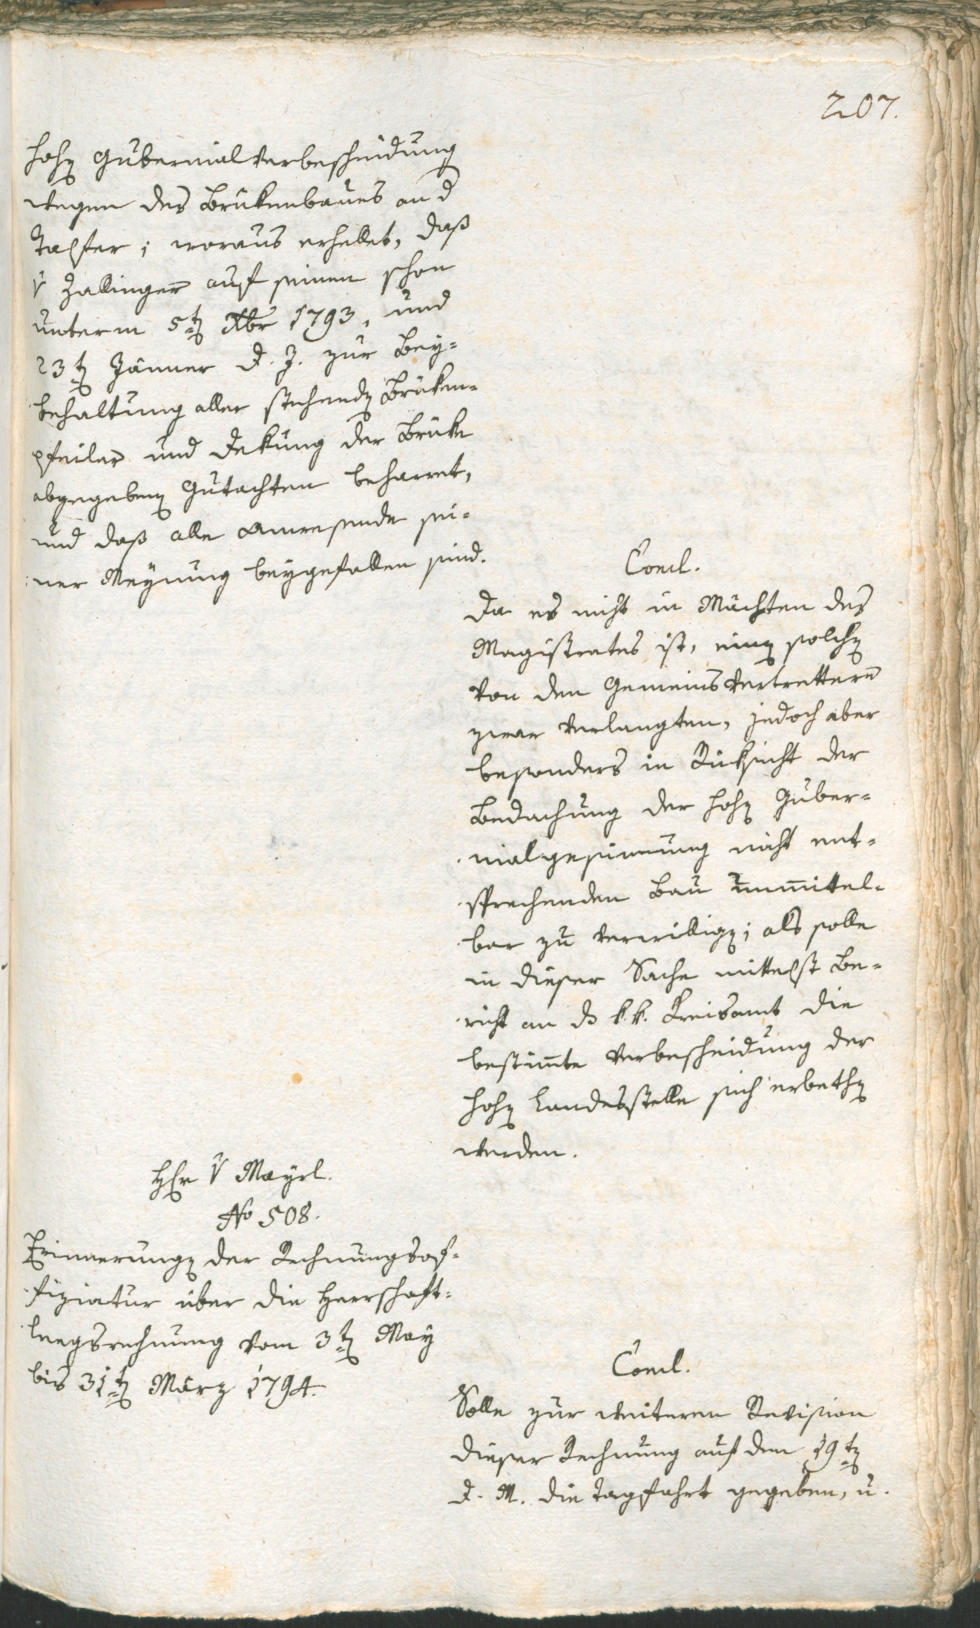 207.
hohen Gubernialverbescheidung
wegen des Brükenbaues an d
Talfer; woraus erhellet, daß
v Zallinger auf seinen schon
unterm 5ten Xbr 1793, und
23ten Jänner d. J. zur Bey=
behaltung aller stehenden Brüken=
pfeiler und Dekung der Brüke
abgegebenen Gutachten beharret,
und daß alle Anwesende sei=
ner Meynung beygefallen sind.
Concl.
Da es nicht in Mächten des
Magistrates ist, einen solchen
von den Gemeinsvertrettern
zwar verlangten, jedoch aber
besonders in Rüksicht der
Bedachung der hohen Guber=
nialgesinnung nicht ent=
sprechenden Bau unmittel=
bar zu verwilligen; als solle
in dieser Sache mittelst Be=
richt an d k. k. Kreisamt die
bestimmte Verbescheidung der
hohen Landesstelle sich erbethen
werden.
Hr v Mayrl.
No 508.
Erinnerungen der Rechnungsof=
fiziatur über die Herrschaft=
lengsrechnung vom 3ten May
bis 31ten März 1794.
Concl.
Solle zur weiteren Revision
dieser Rechnung auf den 19ten
d. M. die Tagfahrt gegeben, u.